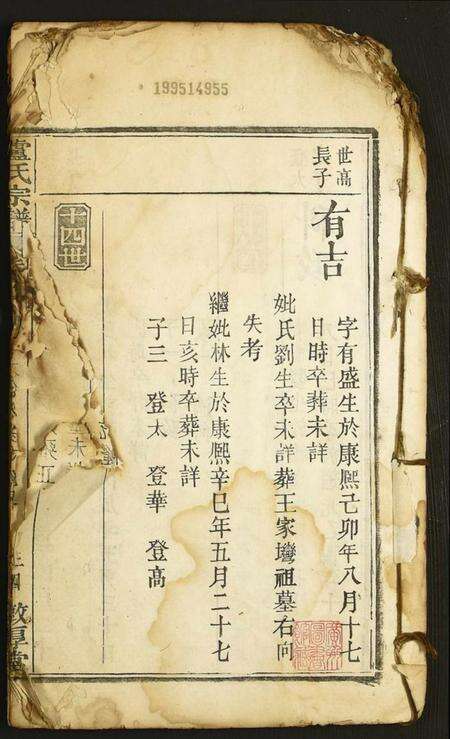 199514955
世高
長子
有吉
字有盛生於康熈己卯年八月十七
日時卒葬未詳
妣氏劉生卒未詳葬王家壪祖墓右向
失考
繼妣林生於康熈辛巳年五月二十七
日亥時卒葬未詳
子三 登太 登華 登高
十四世
盧氏宗譜
敦厚堂